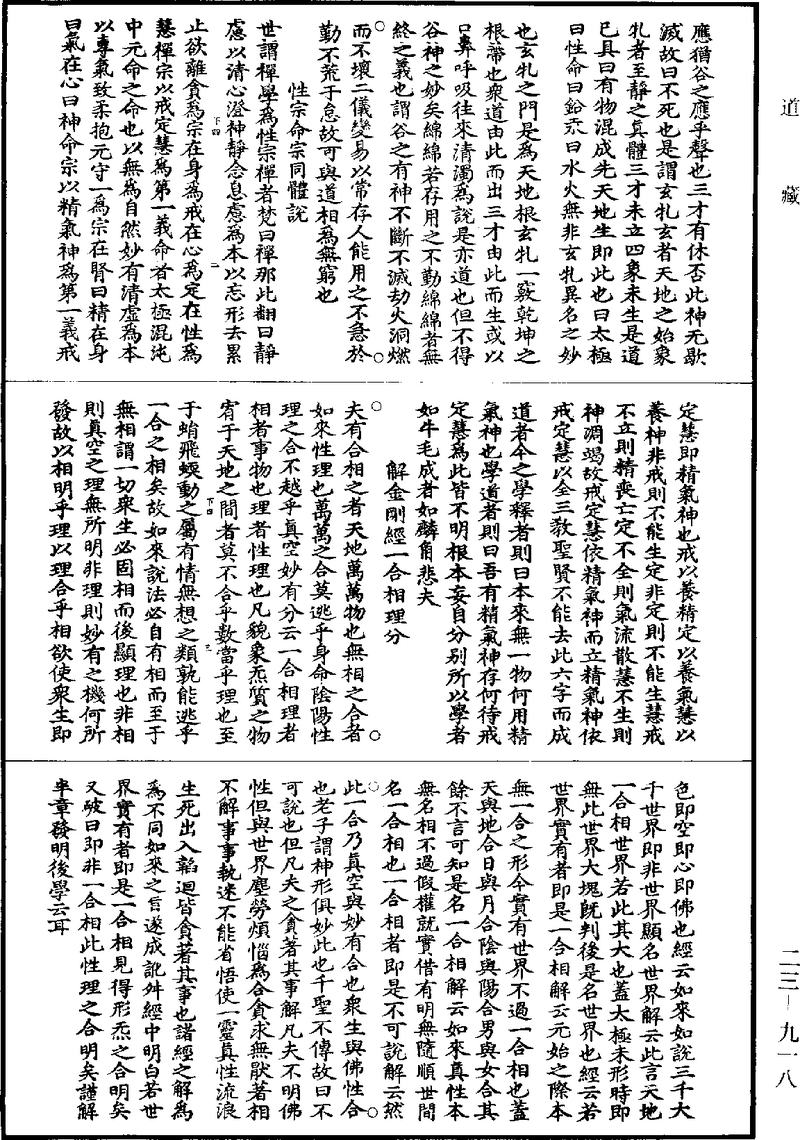 道藏
應猶谷之應乎聲也三才有休否此神无歇
滅故曰不死也是謂玄牝玄者天地之始象
牝者至靜之真體三才未立四象未生是道
已具曰有物混成先天地生即此也曰太極
曰性命曰鉛汞曰水火無非玄牝異名之妙
也玄牝之門是為天地根玄牝一竅乾坤之
根蔕也衆道由此而出三才由此而生或以
口鼻呼吸往來清濁為說是亦道也但不得
谷神之妙矣綿綿若存用之不勤綿綿者無
終之義也謂谷之有神不斷不滅劫火洞燃
而不壞二儀變易以常存人能用之不急於
勤不荒于怠故可與道相為無窮也
性宗命宗同體說
世謂禪學為性宗禪者梵曰禪那此翻曰靜
慮以清心澄神靜念息慮為本以忘形去累
止欲離貪為宗在身為戒在心為定在性為
慧禪宗以戒定慧為第一義命者太極混沌
中元命之命也以無為自然妙有清虛為本
以專氣致柔抱元守一為宗在腎曰精在身
曰氣在心曰神命宗以精氣神為第一義戒
定慧即精氣神也戒以養精定以養氣慧以
養神非戒則不能生定非定則不能生慧戒
不立則精喪亡定不全則氣流散慧不生則
神凋竭故戒定慧依精氣神而立精氣神依
戒定慧以全三敎聖賢不能去此六字而成
道者今之學釋者則曰本來無一物何用精
氣神也學道者則曰吾有精氣神存何待戒
定慧為此皆不明根本妄自分別所以學者
如牛毛成者如麟角悲夫
解金剛經一合相理分
夫有合相之者天地萬萬物也無相之合者
如來性理也萬萬之合莫逃乎身命陰陽性
理之合不越乎真空妙有分云一合相理者
相者事物也理者性理也凡貌象炁質之物
宥于天地之間者莫不合乎數當乎理也至
于蛸飛蝡動之屬有情無想之類孰能逃乎
一合之相矣故如來說法必自有相而至于
無相謂一切衆生必固相而後顯理也非相
則真空之理無所明非理則妙有之機何所
發故以相明乎理以理合乎相欲使衆生即
色即空即心即佛也經云如來如說三千大
千世界即非世界顯名世界解云此言天地
一合相世界若此其大也蓋太極未形時即
無此世界大塊旣判後是名世界也經云若
世界實有者即是一合相解云元始之際本
無一合之形今實有世界不過一合相也蓋
天與地合日與月合陰與陽合男與女合其
餘不言可知是名一合相解云如來真性本
無名相不過假權就實借有明無隨順世間
名一合相也一合相者即是不可說解云然
此一合乃真空與妙有合也衆生與佛性合
也老子謂神形俱妙此也千聖不傳故曰不
可說也但凡夫之貪著其事解凡夫不明佛
性但與世界塵勞煩惱為合貪求無猒著相
不解事事執迷不能省悟使一靈真性流浪
生死出入輪迴皆貪著其事也諸經之解為
為不同如來之言遂成訛舛經中明白若世
界實有者即是一合相見得形炁之合明矣
又破曰即非一合相此性理之合明矣謹解
半章發明後學云耳
二三－九一八